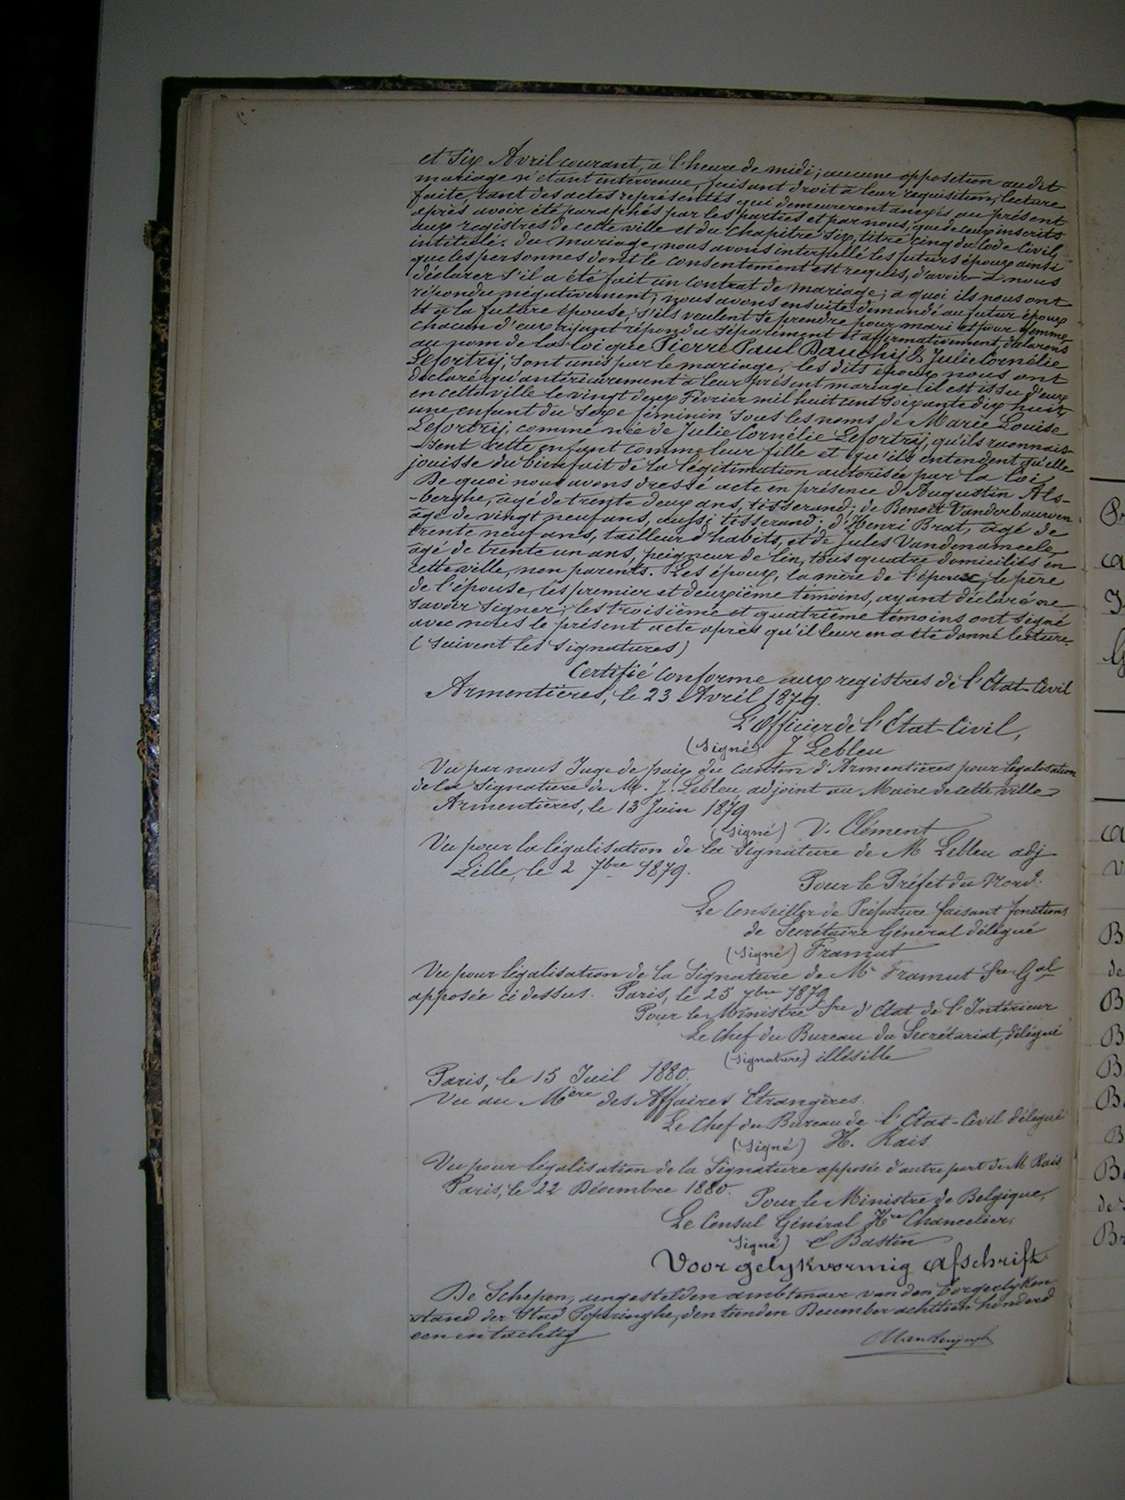 et Six Avril courant, a l'heure de midi; aucune opposition audit
mariage n'étant intervenue, faisant droit à leur réquisition, lecture
faite, tant des actes représentés qui demeureront anexés au présent
après avoir été paraphés par les parties et par nous, que de ceux inscrits
aux registres de cette ville et du Chapitre Six, titre cinq du Code Civil,
intitulé: du mariage, nous avons interpellé les futurs époux ainsi
que les personnes dont le consentement est requis, d'avoir à nous
déclarer s'il a été fait un contrat de mariage; a quoi ils nous ont
répondu négativement; nous avons ensuite demandé au futur époux
et à la future épouse, s'ils veulent se prendre pour mari et pour femme,
chacun d'eux ayant répondu séparément et affirmativement, déclarons
au nom de la loi que Pierre Paul Bauchy & Julie Cornélie
Lefortry, sont unis par le mariage, les dits époux nous ont
déclaré qu'antérieurement à leur présent mariage il est issu d'eux
en cette ville le vingt deux Février mil huit cent soixante dix huit,
une enfant du sexe féminin sous les noms de Marie Louise
Lefortry, comme née de Julie Cornélie Lefortry, qu'ils reconnais-
-sent cette enfant comme leur fille et qu'ils entendent qu'elle
jouisse du bienfait de la légitimation autorisée par la loi,
De quoi nous avons dressé acte en présence d'Augustin Als-
-berghe, agé de trente deux ans, tisserand; de Benoît Vanderbauwen
agé de vingt neuf ans, aussi tisserand; d'Henri Brat, agé de
trente neuf ans, tailleur d'habits, et de Jules Vandenameele,
agé de trente un ans, peigneur de lin, tous quatre domiciliés en
cette ville, non parents. Les époux, la mère de l'époux, le père
de l'épouse, les premier et deuxième témoins, ayant déclaré ne
savoir signer; les troisième et quatrième témoins ont signé
avec nous le présent acte après qu'il leur en a été donné lecture.
(suivent les signatures)
Certifié conforme aux registres de l'Etat-Civil
Armentières, le 23 Avril 1879.
L'Officier de l'Etat-Civil,
(signé) J Lebleu
Vu par nous Juge de paix du canton d'Armentières pour légalisation
de la signature de M. J. Lebleu adjoint au Maire de cette ville
Armentières, le 13 Juin 1879
(signé) V. Clément
Vu pour la légalisation de la signature de M Lebleu adj
Lille, le 2 7bre 1879.
Pour le Préfet du Nord.
Le Conseiller de Préfecture faisant fonctions
de Secrétaire Général délégué
(signé) Framut
Vu pour légalisation de la signature de Mr Framut Sre Gal
apposée ci dessus. Paris, le 25 7bre 1879
Pour le Ministre Sre d'Etat de l'Intérieur
Le Chef du Bureau du Secrétariat, délégué
(signature) illisible
Paris, le 15 Juil 1880.
Vu au Mère des Affaires Etrangères.
Le Chef du Bureau de l'Etat-Civil délégué
(signé) H. Rais
Vu pour légalisation de la signature apposée d'autre part de M Rais
Paris, le 22 Décembre 1880.
Pour le Ministre de Belgique,
Le Consul Général Hre Chancelier,
signé) E Bastin
Voor gelykvormig afschrift
De Schepen, aengestelden ambtenaar van den borgerlyken
stand der Stad Poperinghe, den tienden December achttien honderd
een en tachtig